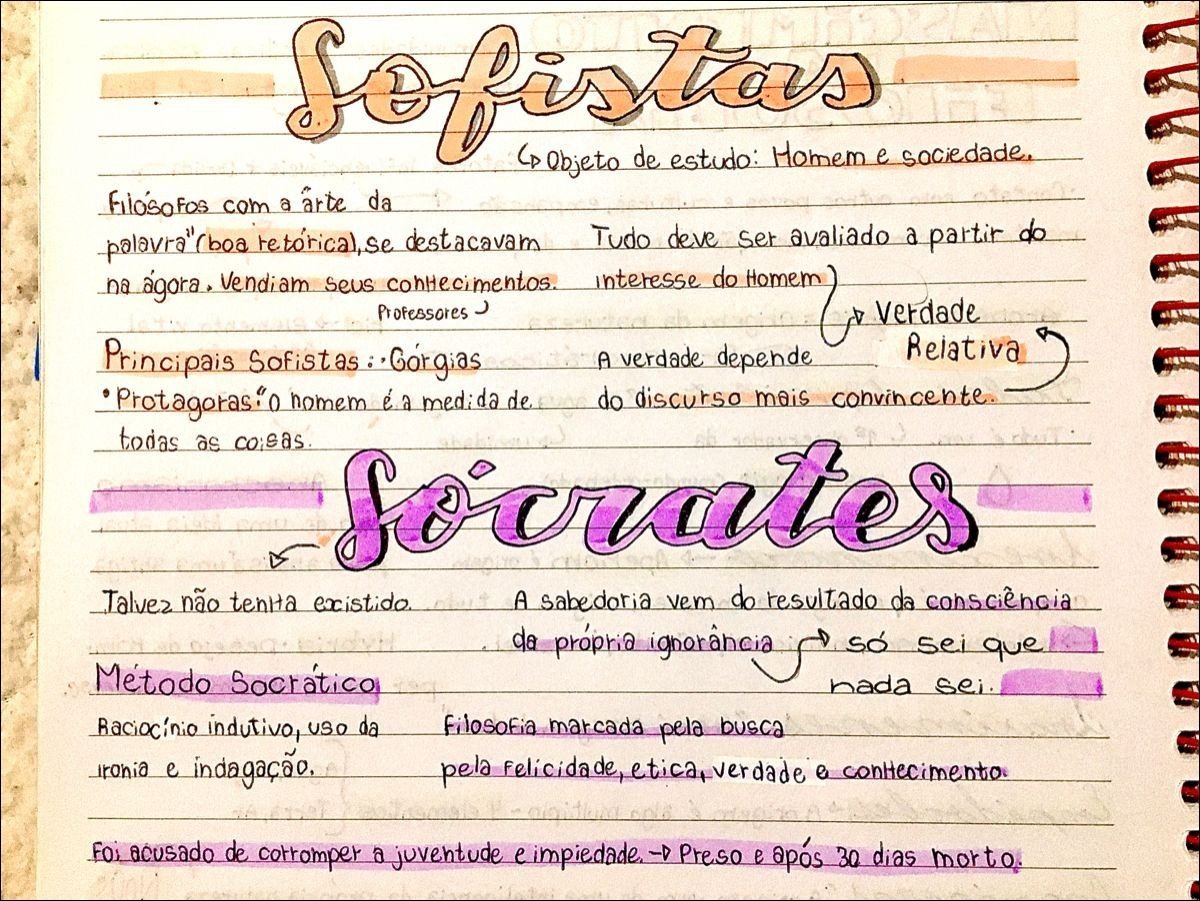 Sofistas
↳ Objeto de estudo: Homem e sociedade.
Filósofos com a "arte da
palavra" (boa retórica), se destacavam
na ágora. Vendiam seus conhecimentos.
Professores
Principais Sofistas: · Górgias
• Protagoras: "O homem é a medida de
todas as coisas.
Tudo deve ser avaliado a partir do
interesse do Homem
→ Verdade
Relativa
A verdade depende
do discurso mais convincente.
Sócrates
Talvez não tenha existido.
A sabedoria vem do resultado da consciência
da própria ignorância → só sei que
nada sei.
Método Socrático
Raciocínio indutivo, uso da
ironia e indagação.
Filosofia marcada pela busca
pela felicidade, etica, verdade e conhecimento.
Foi acusado de corromper a juventude e impiedade. → Preso e após 30 dias morto.